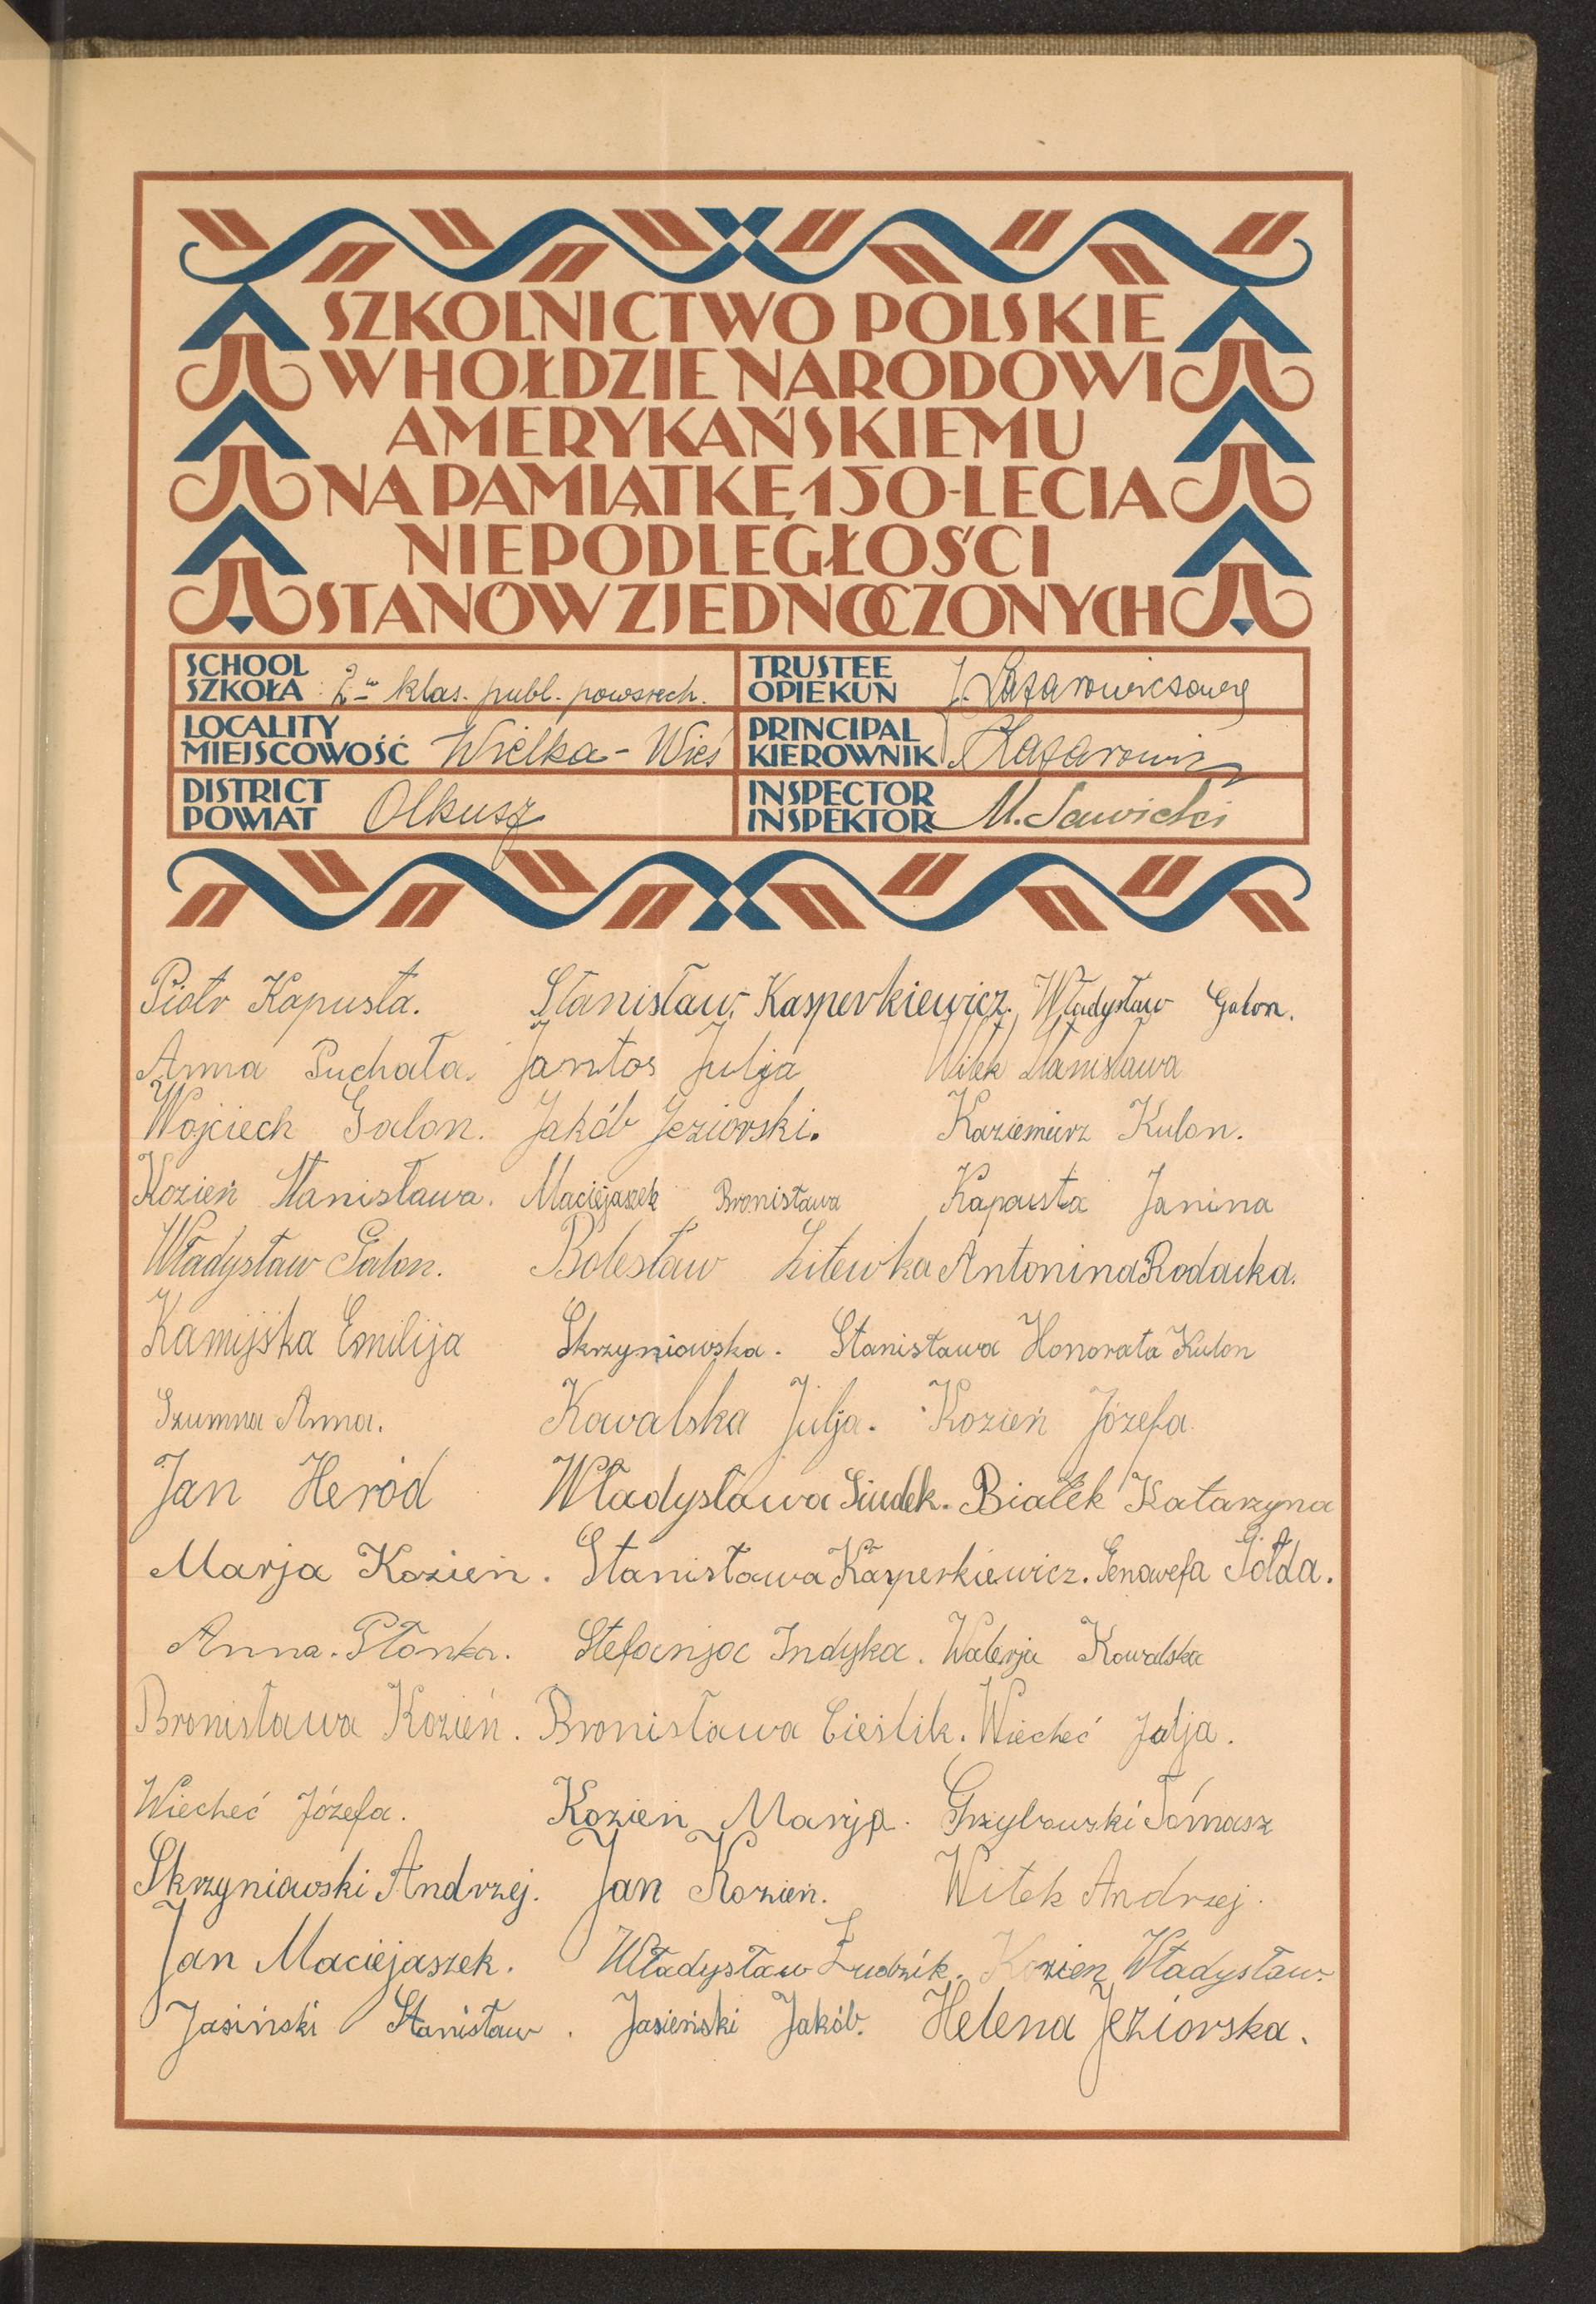 SZKOLNICTWO POLSKIE
W HOŁDZIE NARODOWI
AMERYKAŃSKIEMU
NA PAMIĄTKĘ 150-LECIA
NIEPODLEGŁOŚCI
STANÓW ZJEDNOCZONYCH
SCHOOL
SZKOŁA : 2-u klas. publ. powszech.
TRUSTEE
OPIEKUN J. Łazarowiczowa
LOCALITY
MIEJSCOWOŚĆ Wielka-Wieś
PRINCIPAL
KIEROWNIK Łazarowicz
DISTRICT
POWIAT Olkusz
INSPECTOR
INSPEKTOR M. Sawicki
Piotr Kapusta. Stanisław Kasperkiewicz. Władysław Galon.
Anna Puchała. Jamtos Julja Witek Stanisława
Wojciech Galon. Jakób Jeziorski. Kazimierz Kulon.
Kozień Stanisława. Maciejaszek Bronisława Kapusta Janina
Władysław Galon. Bolesław Litewka Antonina Rodacka.
Kamijska Emilija Skrzyniowska. Stanisława Honorata Kulon
Szumna Anna. Kowalska Julja. Kozień Józefa
Jan Heród Władysława Siudek. Białek Katarzyna
Marja Kozień. Stanisława Kasperkiewicz. Genowefa Gołda.
Anna. Płonka. Stefanja Indyka. Walerja Kowalska
Bronisława Kozień. Bronisława Cieślik. Wiecheć Julja.
Wiecheć Józefa. Kozień Marja. Grzybowski Tomasz
Skrzyniowski Andrzej. Jan Kozień. Witek Andrzej.
Jan Maciejaszek. Władysław Żudzik. Kozien Władysław.
Jasiński Stanisław. Jasieński Jakób. Helena Jeziorska.